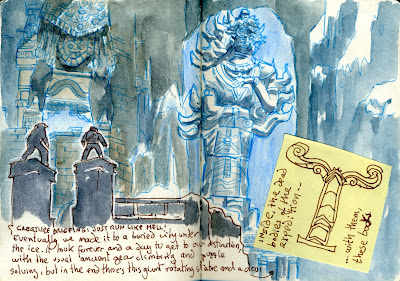 CREATURE MUFFINGS JUST RUN LIKE HELL!
Eventually we made it to a buried city under
the ice. it took forever and a day to get to our destination,
with the usual "ancient gear climbing and puzzle
solving, but in the end theres this giant rotating statue and a door
inside, the dead
bodies of the
expedition --
... with them,
these